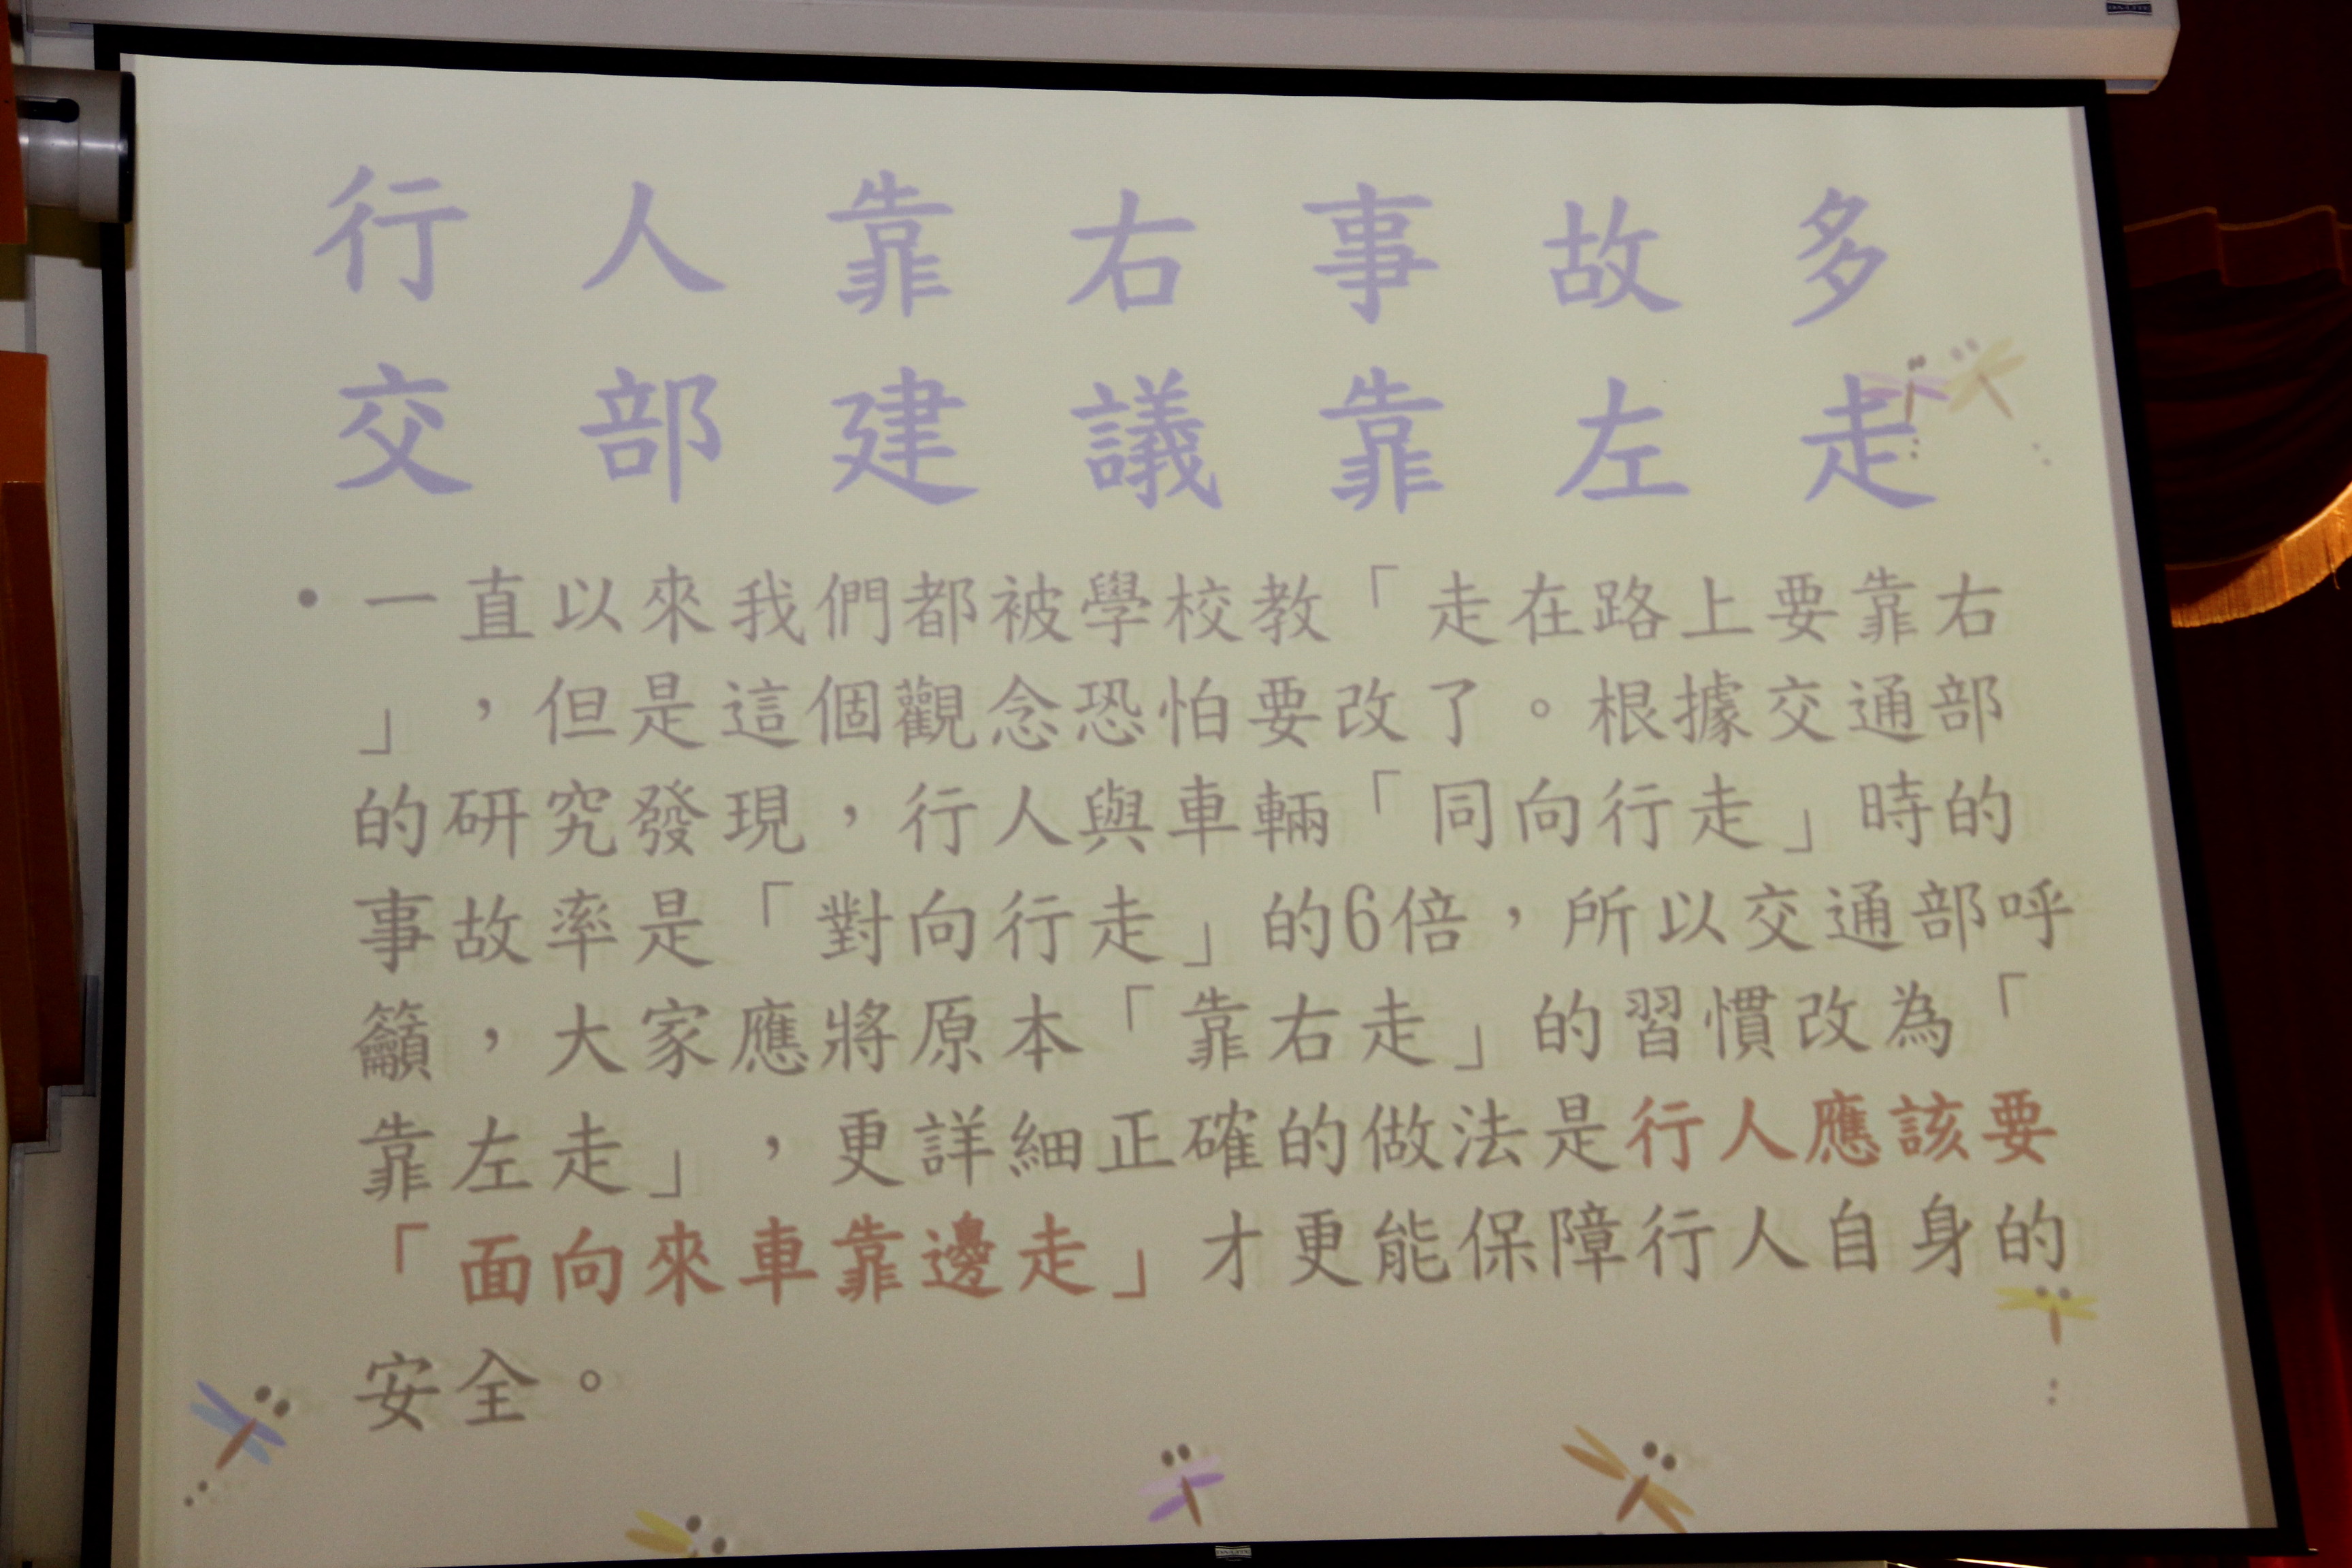 行人靠右事故多
交部建議靠左走
• 一直以來我們都被學校教「走在路上要靠右
」，但是這個觀念恐怕要改了。根據交通部
的研究發現，行人與車輛「同向行走」時的
事故率是「對向行走」的6倍，所以交通部呼
籲，大家應將原本「靠右走」的習慣改為「
靠左走」，更詳細正確的做法是行人應該要
「面向來車靠邊走」才更能保障行人自身的
安全。